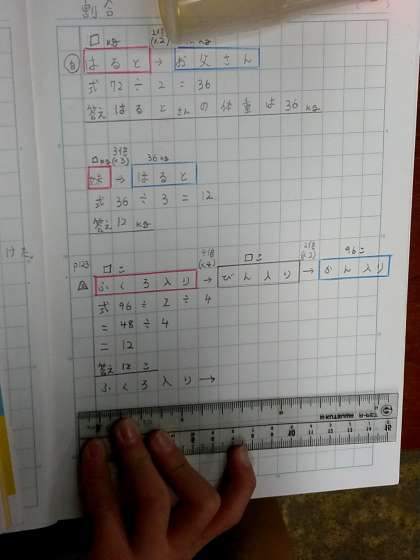 割合
□kg 2倍(×2)
⑥ はると → お父さん
式 72÷2=36
答え はるとさんの体重は36kg
□kg 3倍(×3) 36kg
妹 → はると
式 36÷3=12
答え 12kg
P123 □こ □こ 2倍(×2) 96こ
ふくろ入り → びん入り → かん入り
式 96÷2÷4
=48÷4
=12
答え 12こ
ふくろ入り→
けた。